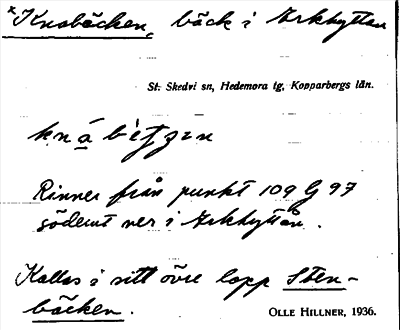 *Knobäcken, bäck i Arkhyttan
St. Skedvi sn, Hedemora tg, Kopparbergs län.
Rinner från punkt 109 G 97
söderut ner i Arkhyttån.
Kallas i sitt övre lopp Sten-
bäcken.
OLLE HILLNER, 1936.